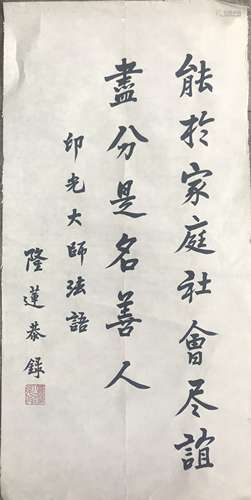 能於家庭社會尽誼
盡分是名善人
印光大師法語
隆蓮恭錄